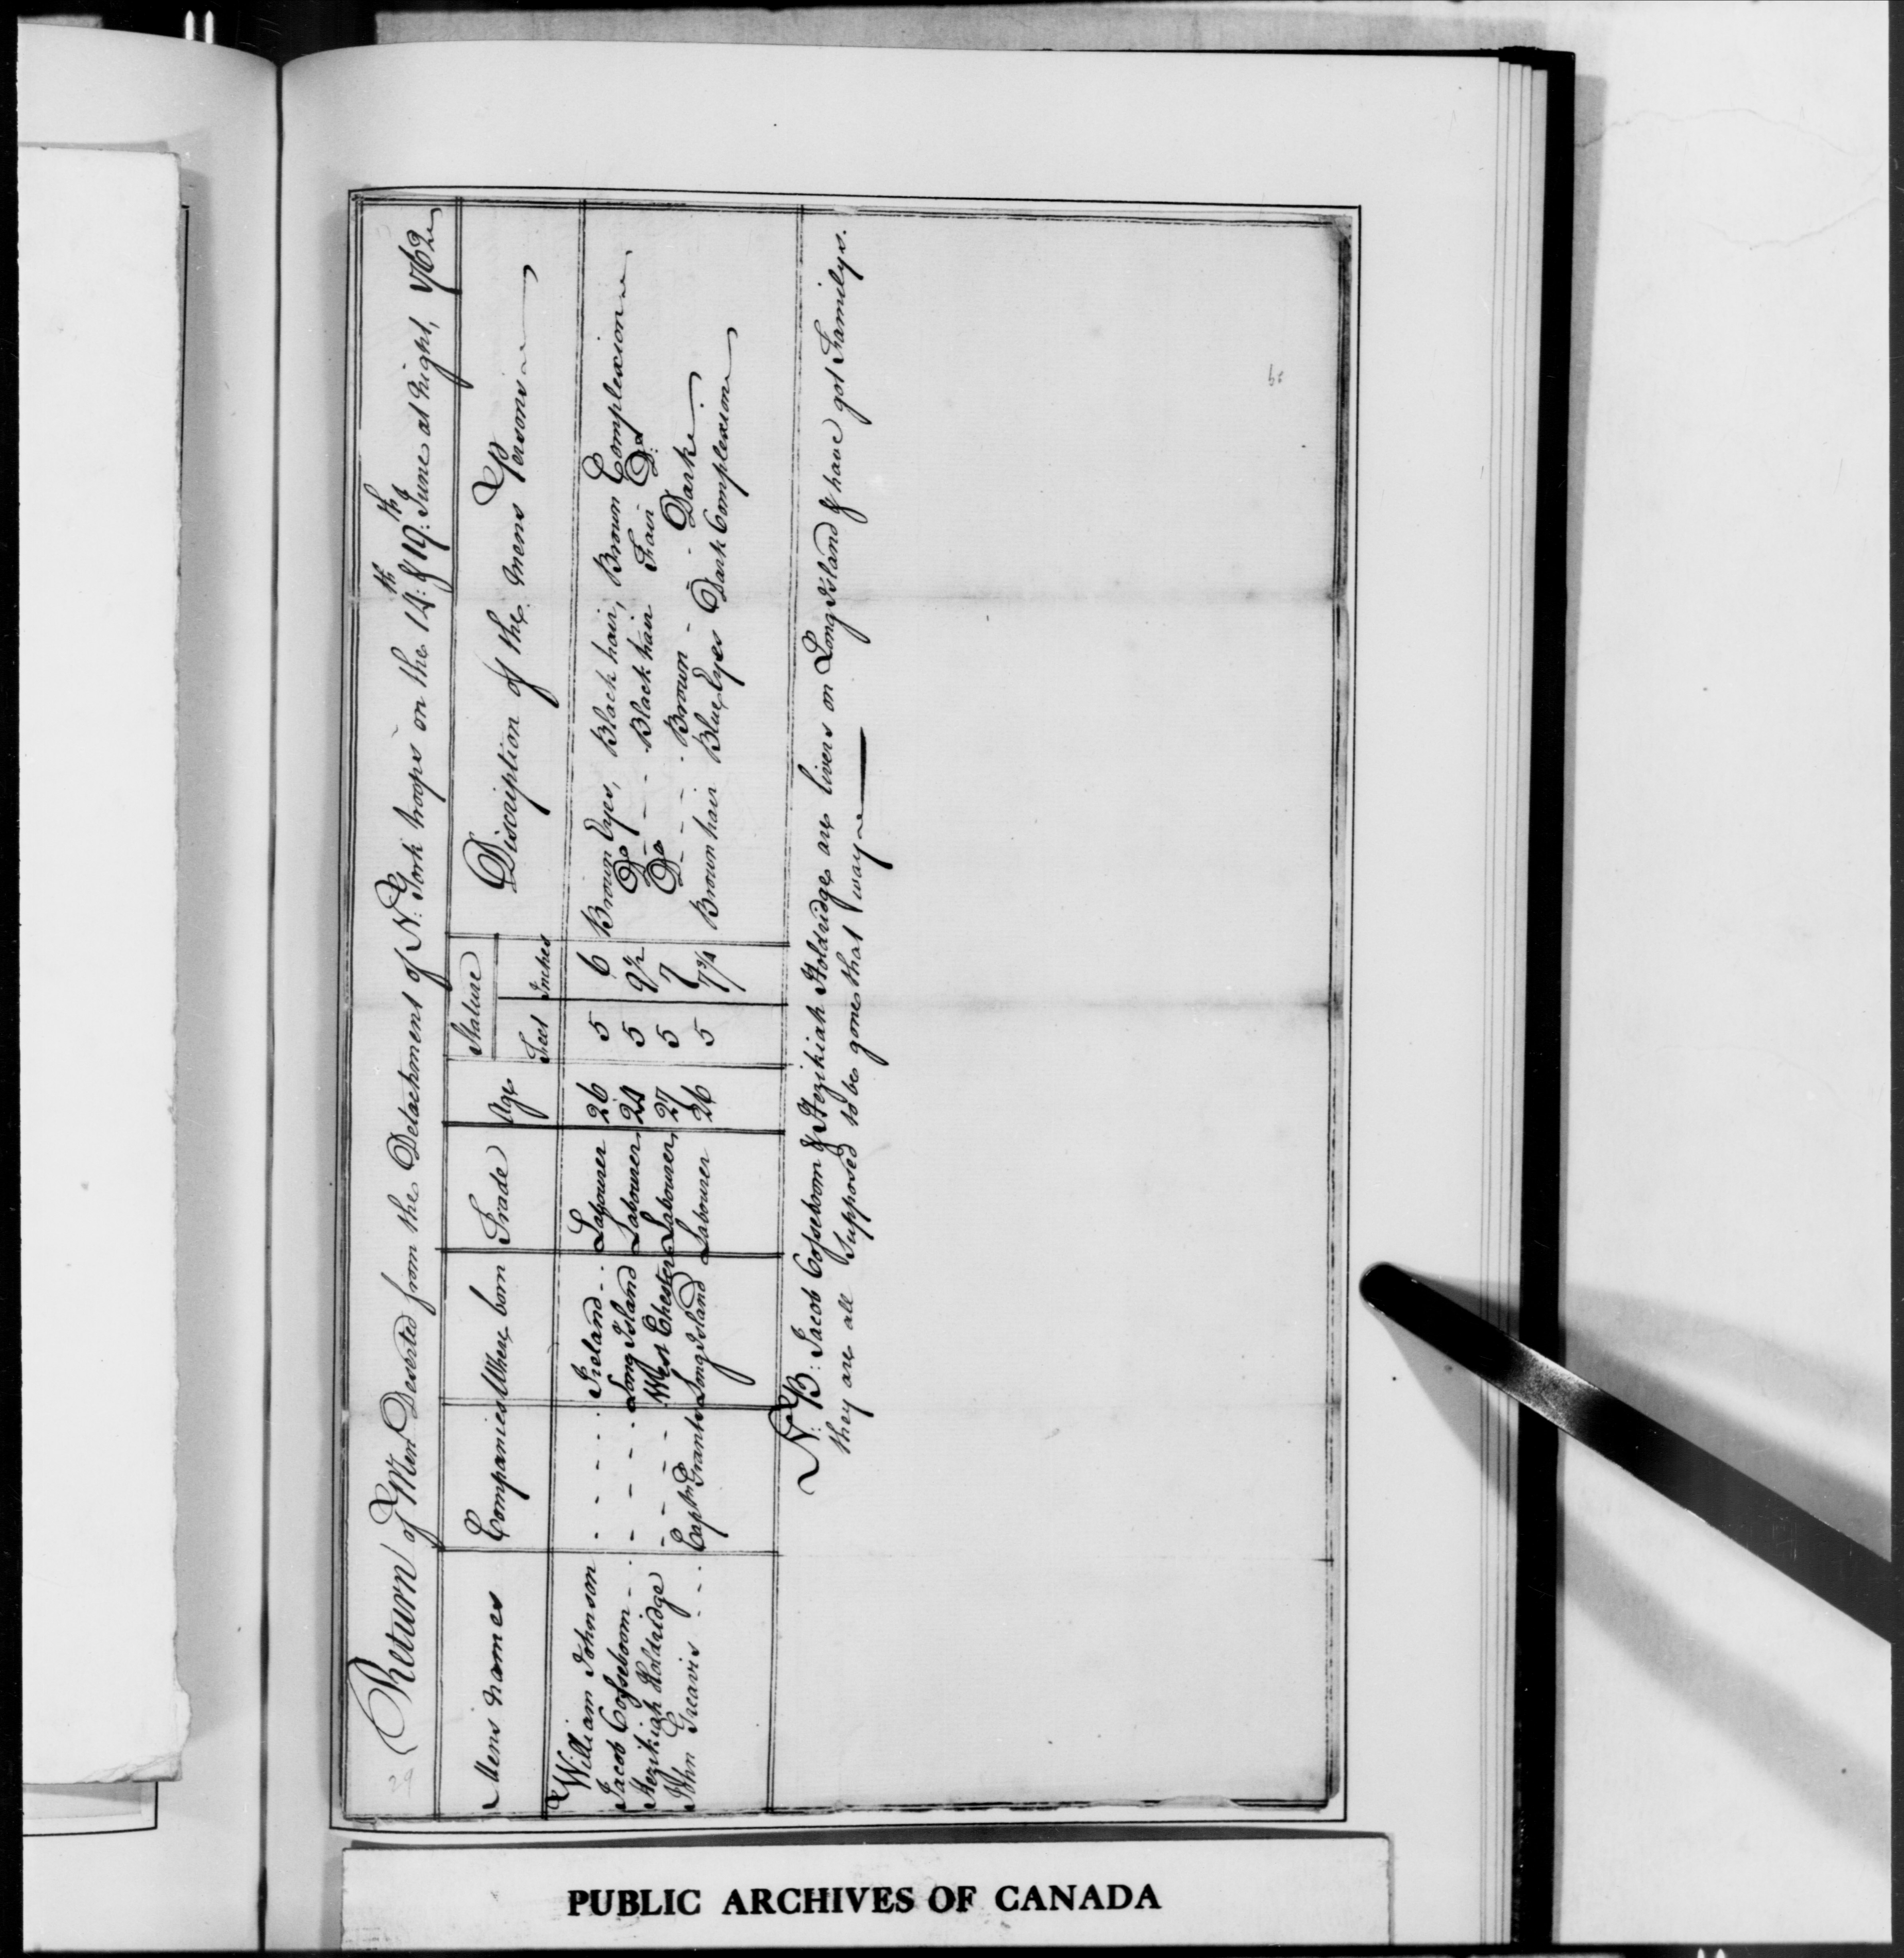 Return of Men Deserted from the Detachment of N: York troops on the 14:th & 19:th June at night, 1762
Mens names Companies Where born Trade Age Stature Feet Inches Discription of the mens Persons
William Johnson - - - - - Ireland - - Labourer 26 5 6 Brown Eyes, Black hair, Brown Complexion
Jacob Cosseboom - - - - - Long Island Labourer 24 5 9½ Do - - - Black hair Fair Do
Hezikiah Holdridge - - - - West Chester Labourer 27 5 7 Do - - - - Brown - - Dark
John Greavis - - - Captn Grants Long Island Labourer 26 5 7¾ Brown hair Blue Eyes Dark Complexion
N:B: Jacob Cosseboom & Hezikiah Holdridge are livers on Long Island & have got Familys.
they are all supposed to be gone that way
PUBLIC ARCHIVES OF CANADA